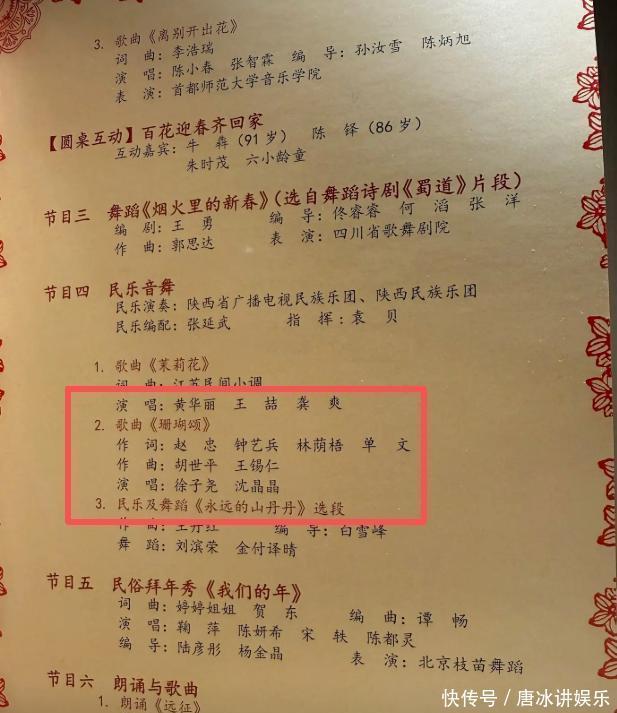 3. 歌曲《离别开出花》
词 曲：李浩瑞
演 唱：陈小春 张智霖 编 导：孙汝雪 陈炳旭
表 演：首都师范大学音乐学院
【圆桌互动】百花迎春齐回家
互动嘉宾：牛 犇（91岁） 陈 铎（86岁）
朱时茂 六小龄童
节目三 舞蹈《烟火里的新春》（选自舞蹈诗剧《蜀道》片段）
编 剧：王 勇 编 导：佟睿睿 何 滔 张 洋
作 曲：郭思达 表 演：四川省歌舞剧院
节目四 民乐音舞
民乐演奏：陕西省广播电视民族乐团、陕西民族乐团
民乐编配：张延武 指 挥：袁 贝
1. 歌曲《茉莉花》
词 曲：江苏民间小调
演 唱：黄华丽 王 喆 龚 爽
2. 歌曲《珊瑚颂》
作 词：赵 忠 钟艺兵 林荫梧 单 文
作 曲：胡世平 王锡仁
演 唱：徐子尧 沈晶晶
3. 民乐及舞蹈《永远的山丹丹》选段
作 曲：王丹红 编 导：白雪峰
舞 蹈：刘滨荣 金付译晴
节目五 民俗拜年秀《我们的年》
词 曲：婷婷姐姐 贺 东 编 曲：谭 畅
演 唱：鞠 萍 陈妍希 宋 轶 陈都灵
编 导：陆彦彤 杨金晶
表 演：北京枝苗舞蹈
节目六 朗诵与歌曲
1. 朗诵《远征》
快传号／唐冰讲娱乐